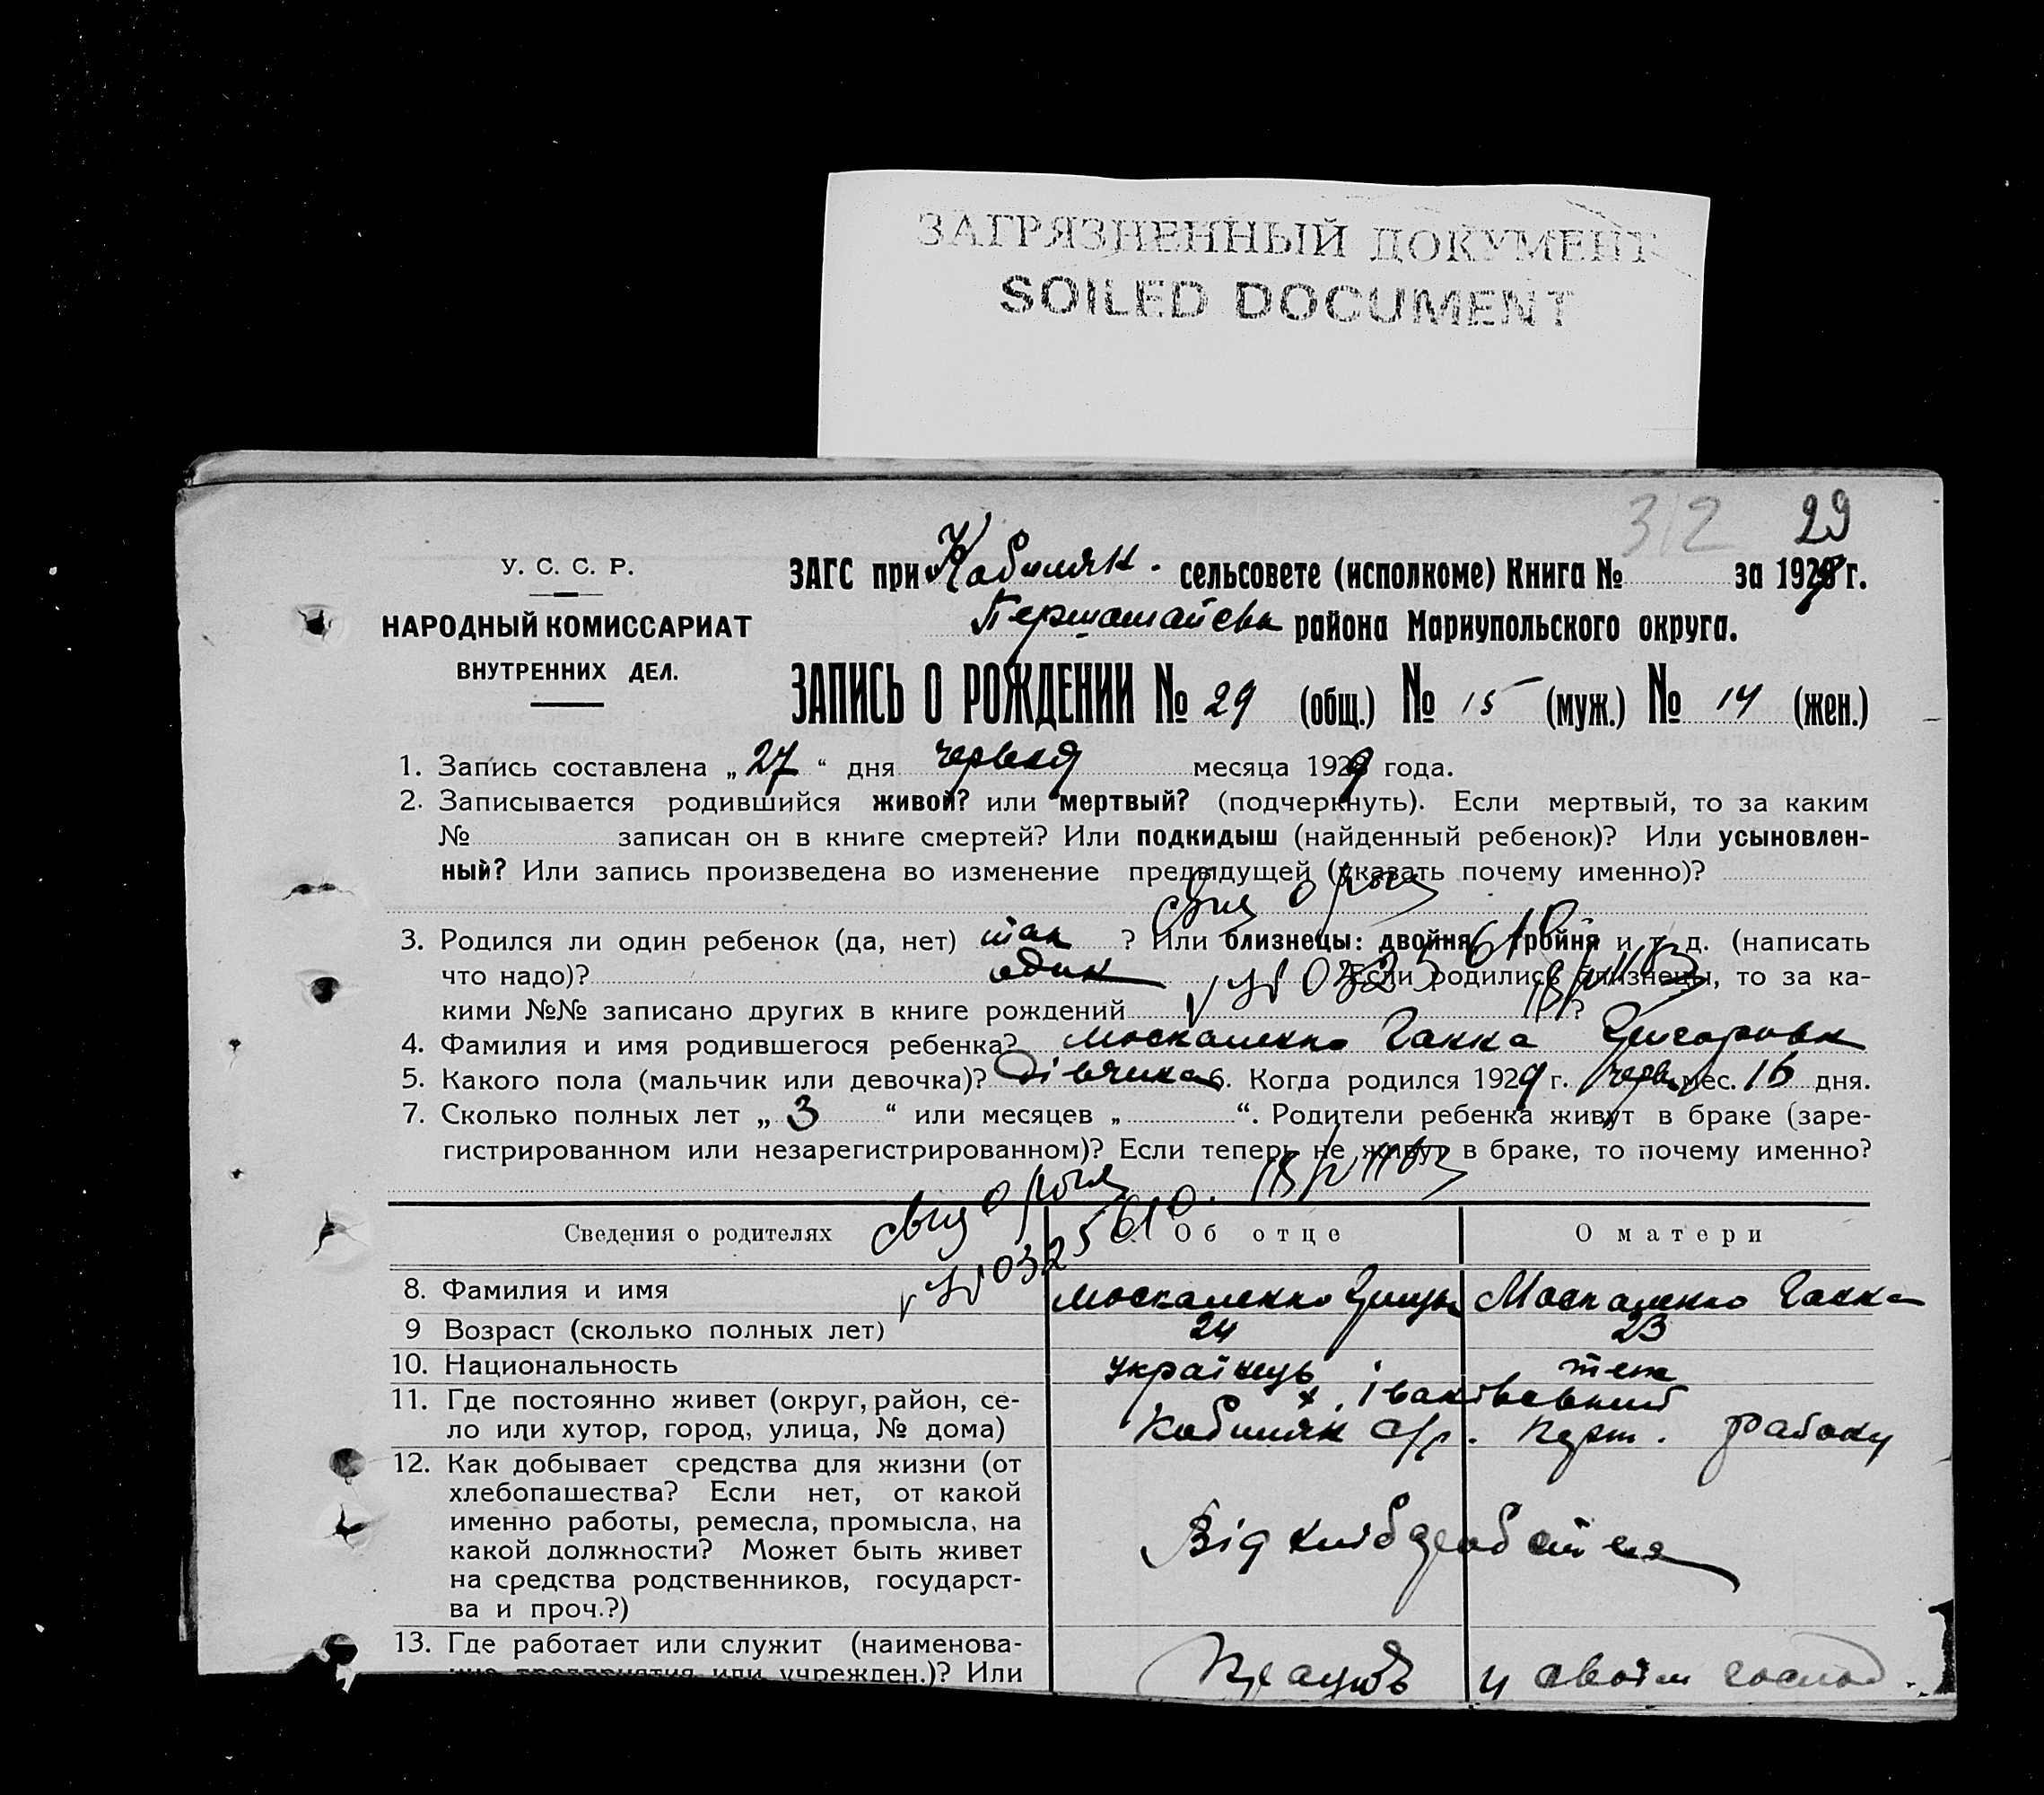 ЗАГРЯЗНЕННЫЙ ДОКУМЕНТ
SOILED DOCUMENT
312 29
У. С. С. Р.
НАРОДНЫЙ КОМИССАРИАТ
ВНУТРЕННИХ ДЕЛ.
ЗАГС при сельсовете (исполкоме) Книга № за 1929 г.
района Мариупольского округа.
ЗАПИСЬ О РОЖДЕНИИ № 29 (общ.) № 15 (муж.) № 14 (жен.)
1. Запись составлена „27“ дня червня месяца 1929 года.
2. Записывается родившийся живой? или мертвый? (подчеркнуть). Если мертвый, то за каким
№ записан он в книге смертей? Или подкидыш (найденный ребенок)? Или усыновлен-
ный? Или запись произведена во изменение предыдущей (указать почему именно)?
3. Родился ли один ребенок (да, нет) так ? Или близнецы: двойня, тройня и т. д. (написать
что надо)? один Если родились близнецы, то за ка-
кими №№ записано других в книге рождений ?
4. Фамилия и имя родившегося ребенка? Москаленко Ганна
5. Какого пола (мальчик или девочка)? Дівчинка 6. Когда родился 1929 г. черв. мес. 16 дня.
7. Сколько полных лет „3“ или месяцев „ “. Родители ребенка живут в браке (заре-
гистрированном или незарегистрированном)? Если теперь не живут в браке, то почему именно?
Сведения о родителях Об отце О матери
8. Фамилия и имя Москаленко Москаленко Ганна
9 Возраст (сколько полных лет) 24 23
10. Национальность Українець теж
11. Где постоянно живет (округ, район, се-
ло или хутор, город, улица, № дома) с/р. Перт. району
12. Как добывает средства для жизни (от
хлебопашества? Если нет, от какой
именно работы, ремесла, промысла, на
какой должности? Может быть живет
на средства родственников, государст-
ва и проч.?)
Від хлібороб
13. Где работает или служит (наименова-
ние предприятия или учрежден.)? Или
Працює у своїм господ.